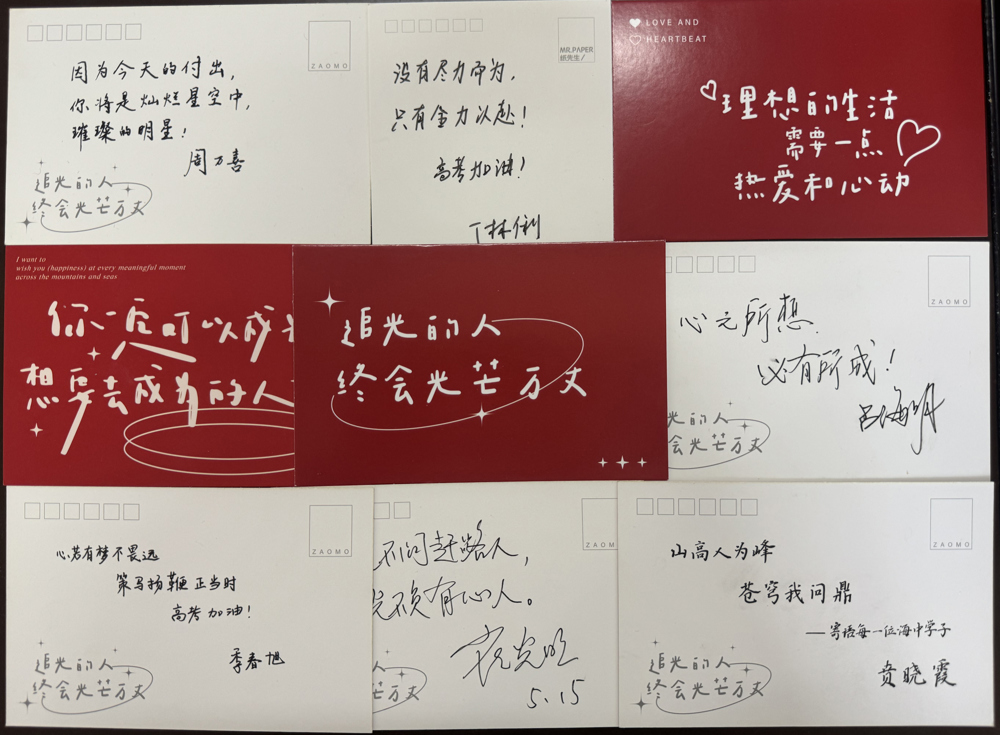 ZAOMO
因为今天的付出，
你将是灿烂星空中，
璀璨的明星！
周万喜
追光的人
终会光芒万丈
MR.PAPER
纸先生/
没有尽力而为，
只有全力以赴！
高考加油！
丁林俐
LOVE AND
HEARTBEAT
理想的生活
需要一点
热爱和心动
I want to
wish you (happiness) at every meaningful moment
across the mountains and seas
你一定可以成为
想要去成为的人
追光的人
终会光芒万丈
ZAOMO
心之所想
必有所成！
吕海明
光的人
会光芒万丈
ZAOMO
心若有梦不畏远
策马扬鞭正当时
高考加油！
季春旭
追光的人
终会光芒万丈
ZAOMO
不问赶路人，
光不负有心人。
5.15
的人
光芒万丈
ZAOMO
山高人为峰
苍穹我问鼎
——寄语每一位海中学子
贲晓霞
追光的人
终会光芒万丈